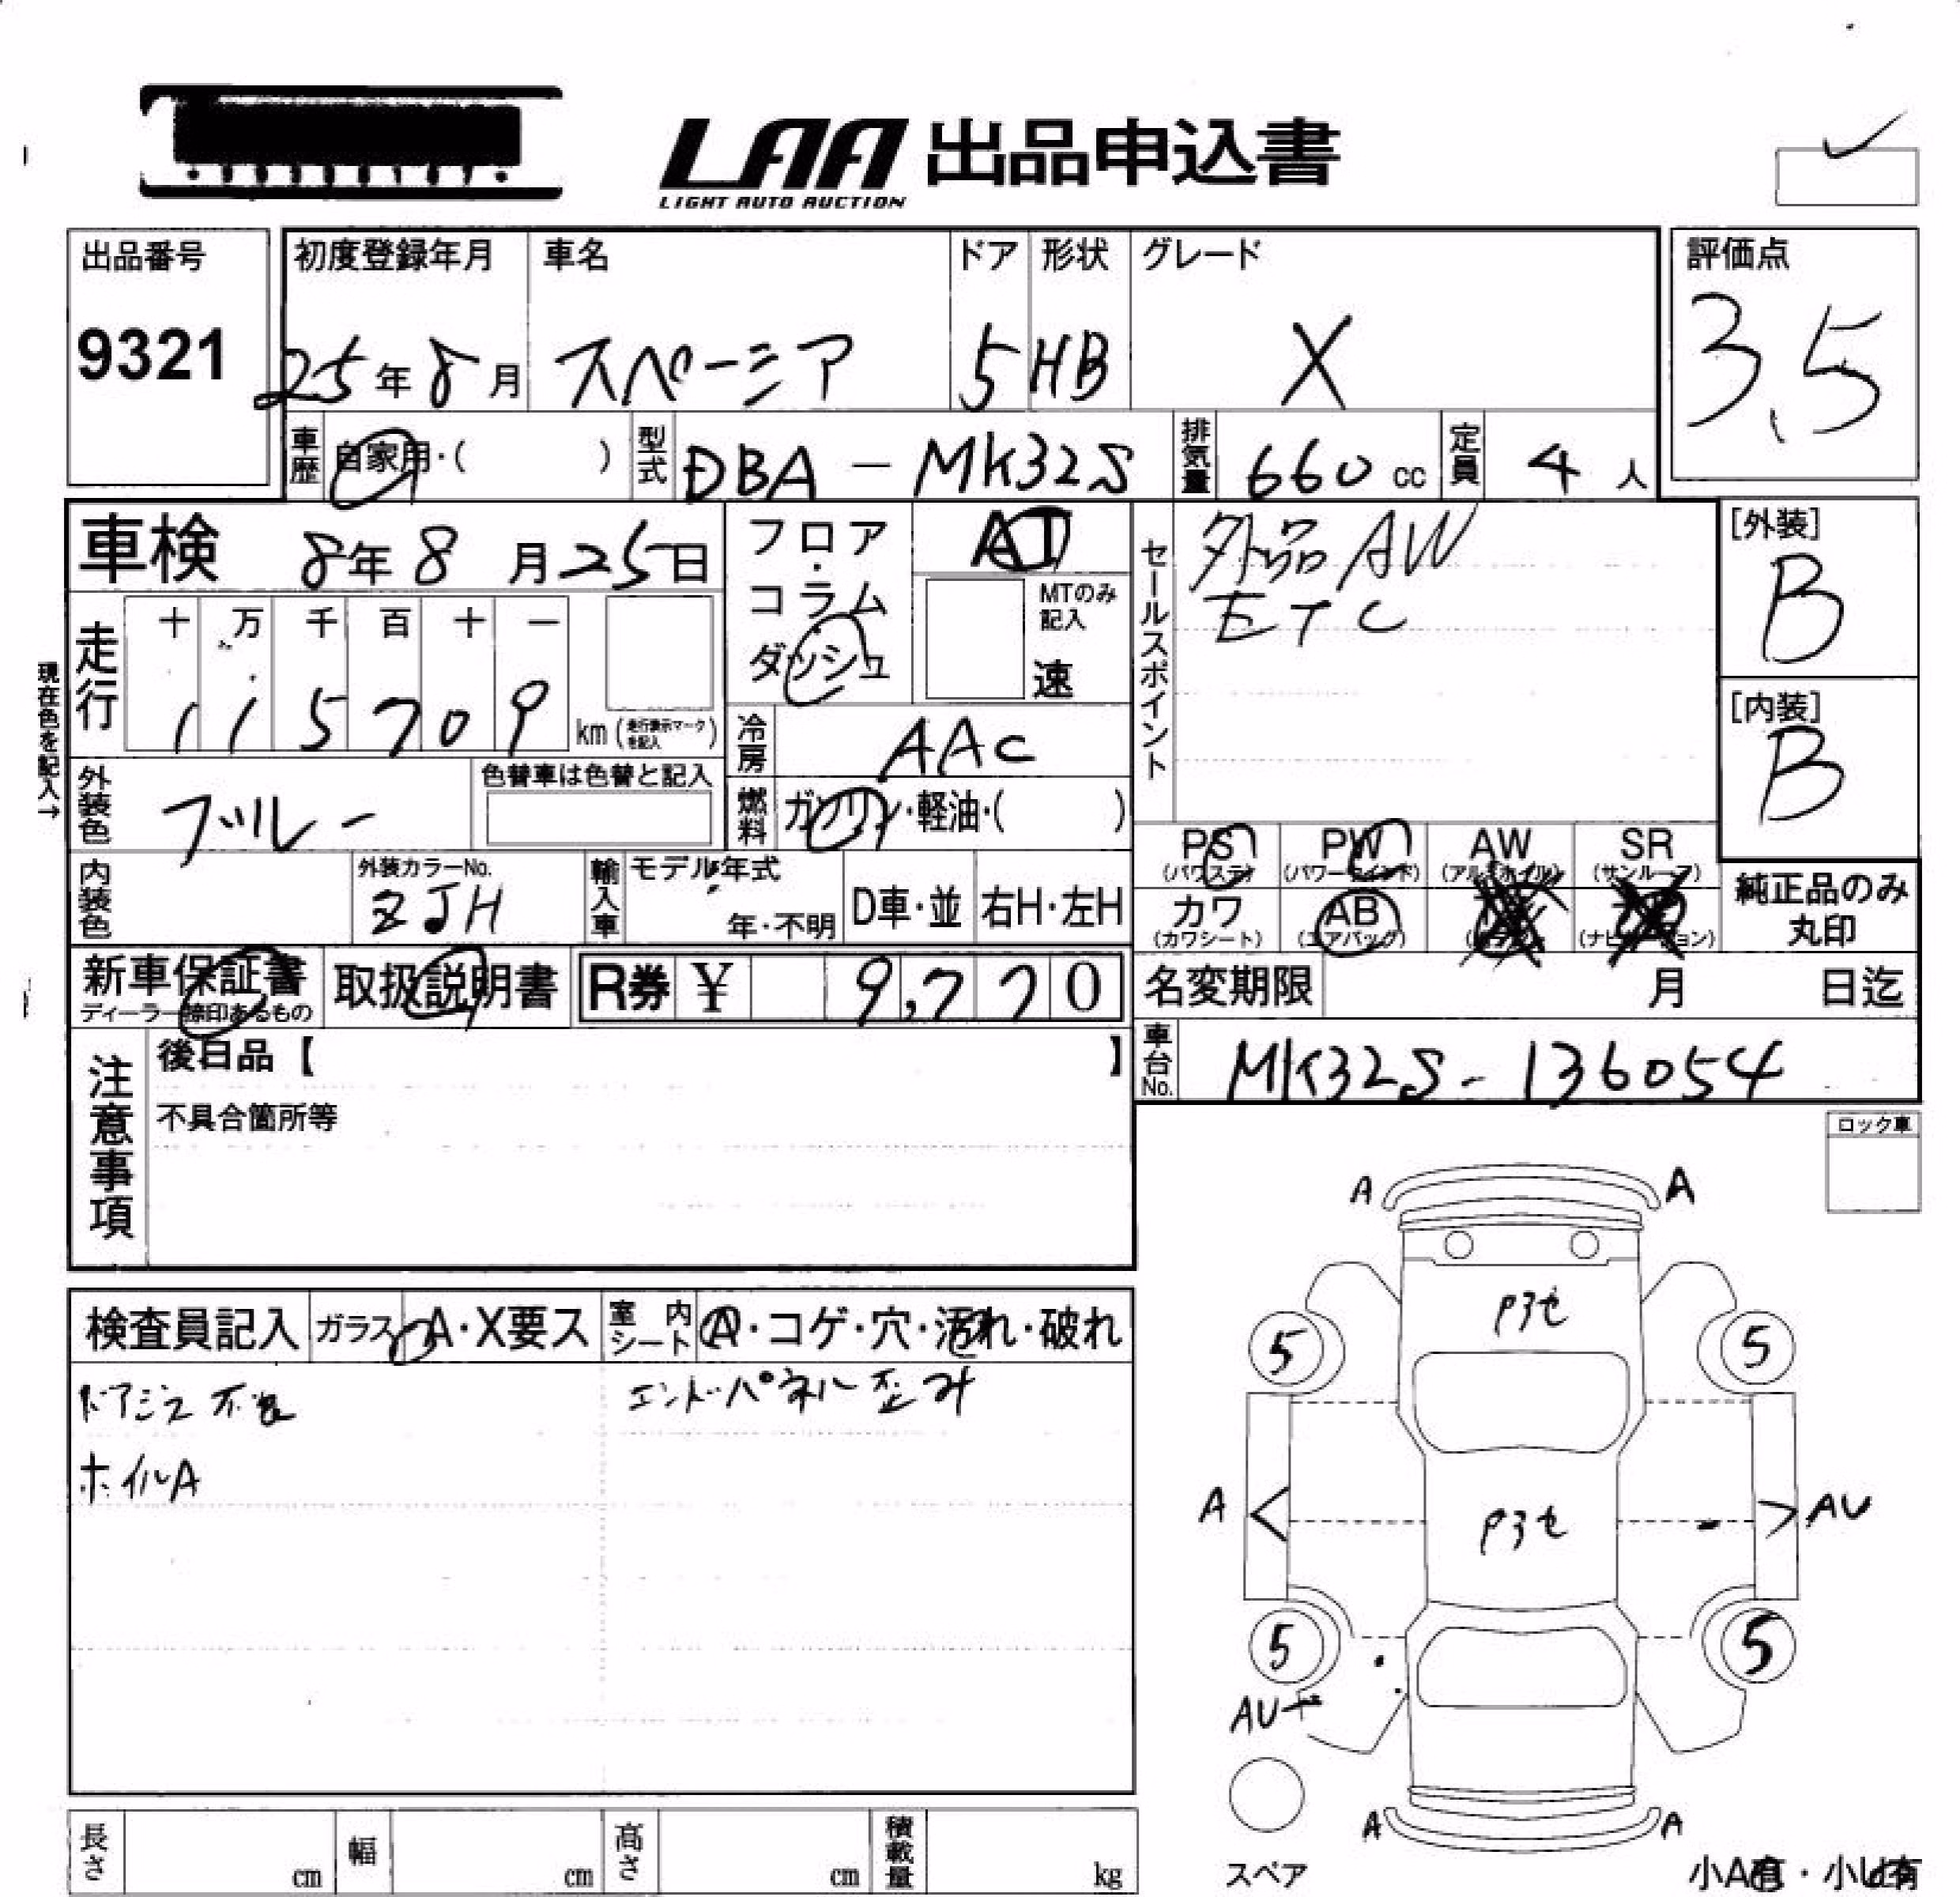 LAA 出品申込書
LIGHT AUTO AUCTION
出品番号
9321
初度登録年月
25年8月
車名
スペーシア
ドア
5
形状
HB
グレード
X
評価点
3.5
車歴
自家用・( )
型式
DBA-MK32S
排気量
660 cc
定員
4 人
車検
8年8月25日
フロア・コラム・ダッシュ
AT
MTのみ記入
速
セールスポイント
外品AW
ETC
[外装]
B
[内装]
B
現在色を記入→
走行
十 万 千 百 十 一
1 1 5 7 0 9
km (走行表示マークを記入)
冷房
AAC
外装色
ブルー
色替車は色替と記入
燃料
ガソリン・軽油・( )
PS
(パワステ)
PW
(パワーウインド)
AW
(アルミホイル)
SR
(サンルーフ)
内装色
外装カラーNo.
ZJH
輸入車
モデル年式
年・不明
D車・並
右H・左H
カワ
(カワシート)
AB
(エアバッグ)
純正品のみ
丸印
新車保証書
ディーラー捺印あるもの
取扱説明書
R券 ¥ 9,770
名変期限
月 日迄
注意事項
後日品【 】
不具合箇所等
車台No.
MK32S-136054
ロック車
検査員記入
ガラス
A・X要ス
室内シート
A・コゲ・穴・汚れ・破れ
ドアミラ不良
エンドパネル歪み
ホイルA
A A
5 5
A AU
5 5
AU
A A
スペア
小A有・小U有
長さ
cm
幅
cm
高さ
cm
積載量
kg